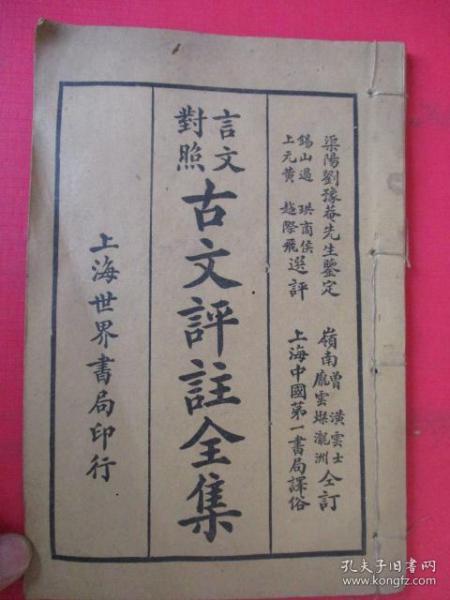 渠陽劉豫菴先生鑒定
錫山過　珙商侯
上元黃　越際飛
選評
嶺南
曾　潢雲士
龐雲燦瀧洲
仝訂
上海中國第一書局譯俗
言文
對照
古文評註全集
上海世界書局印行
孔夫子旧书网
www.kongfz.com